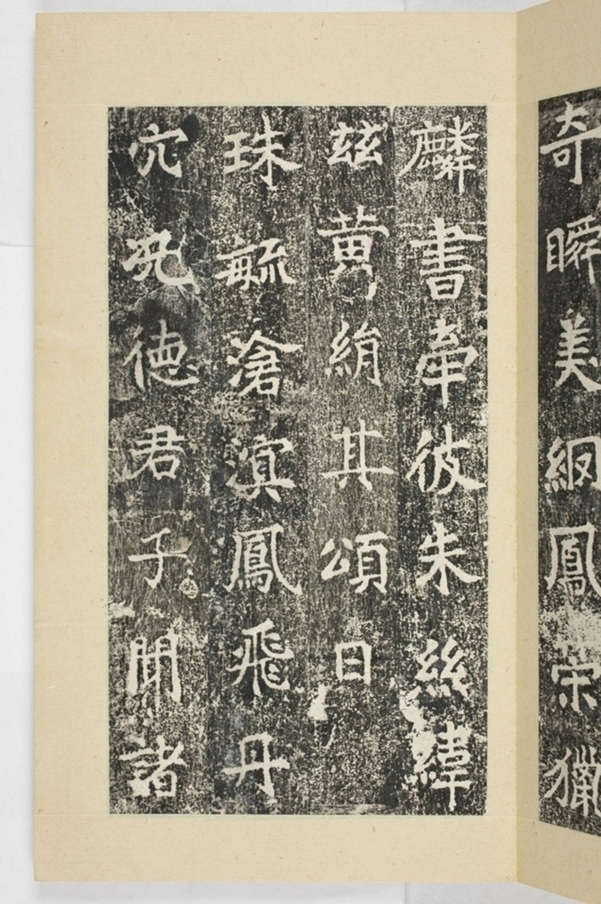 奇瞬美絅鳳荣獵
麟書牽彼朱絲緯
兹黄絹其頌曰
珠毓滄溟鳳飛丹
穴况德君子聞諸